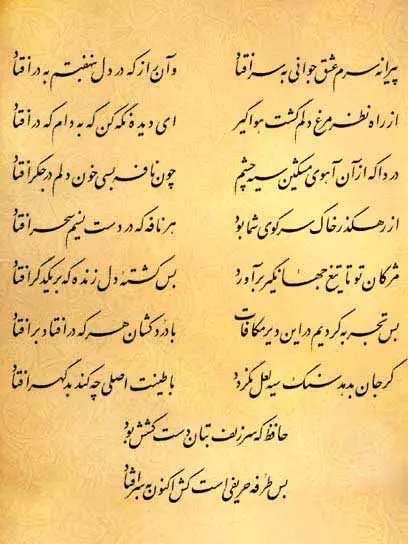 پیرانه سرم عشق جوانی به سر افتاد وآن راز که در دل بنهفتم به در افتاد
از راه نظر مرغ دلم گشت هواگیر ای دیده نگه کن که به دام که در افتاد
دردا که از آن آهوی مشکین سیه چشم چون نافه بسی خون دلم در جگر افتاد
از رهگذر خاک سر کوی شما بود هر نافه که در دست نسیم سحر افتاد
مژگان تو تا تیغ جهانگیر برآورد بس کشته دل زنده که بر یکدگر افتاد
بس تجربه کردیم در این دیر مکافات با دردکشان هر که در افتاد بر افتاد
گر جان بدهد سنگ سیه لعل نگردد با طینت اصلی چه کند بدگهر افتاد
حافظ که سر زلف بتان دست کشش بود
بس طرفه حریفی است کش اکنون به سر افتاد